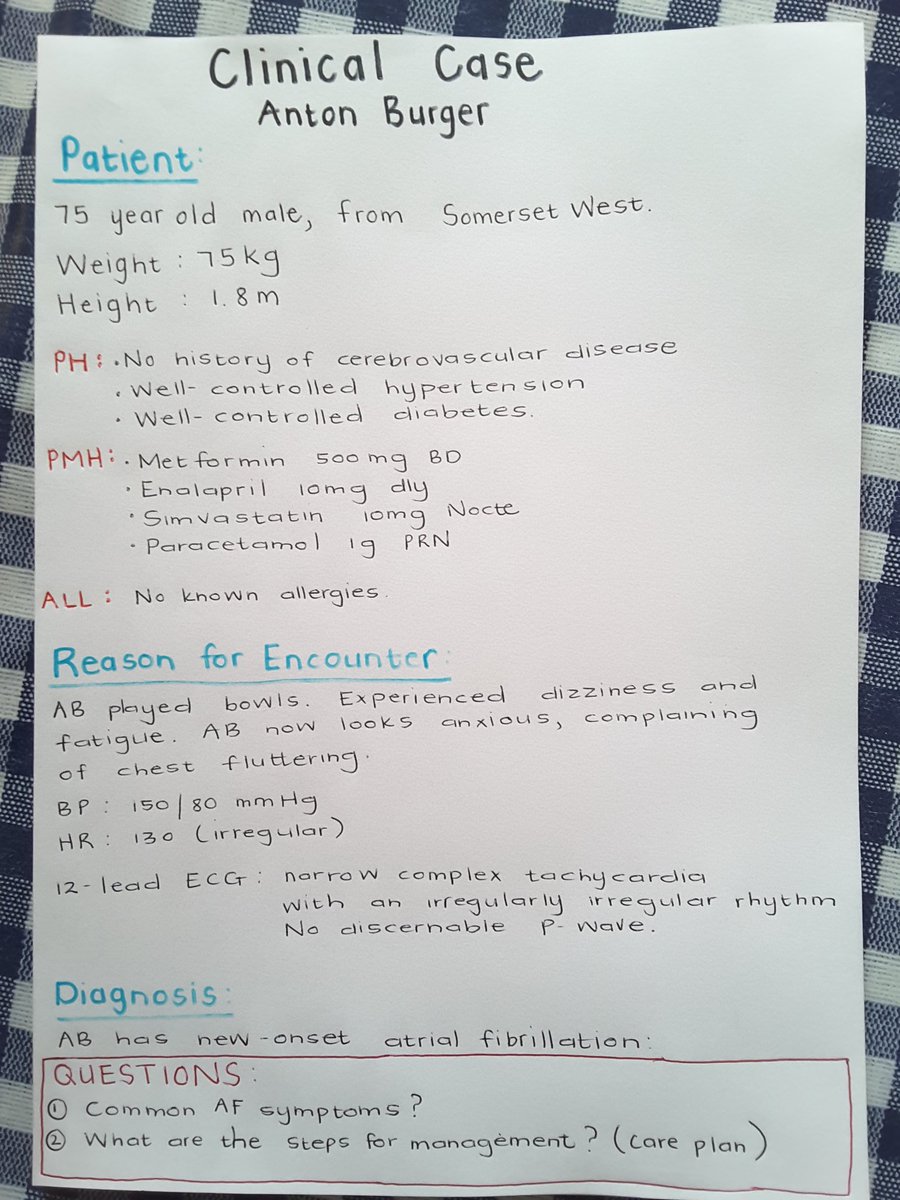 Clinical Case
Anton Burger
Patient:
75 year old male, from Somerset West.
Weight : 75kg
Height : 1.8m
PH: · No history of cerebrovascular disease
· Well-controlled hypertension
· Well-controlled diabetes.
PMH: · Metformin 500mg BD
· Enalapril 10mg dly
· Simvastatin 10mg Nocte
· Paracetamol 1g PRN
ALL: No known allergies.
Reason for Encounter:
AB played bowls. Experienced dizziness and
fatigue. AB now looks anxious, complaining
of chest fluttering.
BP: 150/80 mmHg
HR: 130 (irregular)
12-lead ECG: narrow complex tachycardia
with an irregularly irregular rhythm
No discernable P-wave.
Diagnosis:
AB has new-onset atrial fibrillation:
QUESTIONS:
① Common AF symptoms?
② What are the steps for management? (care plan)